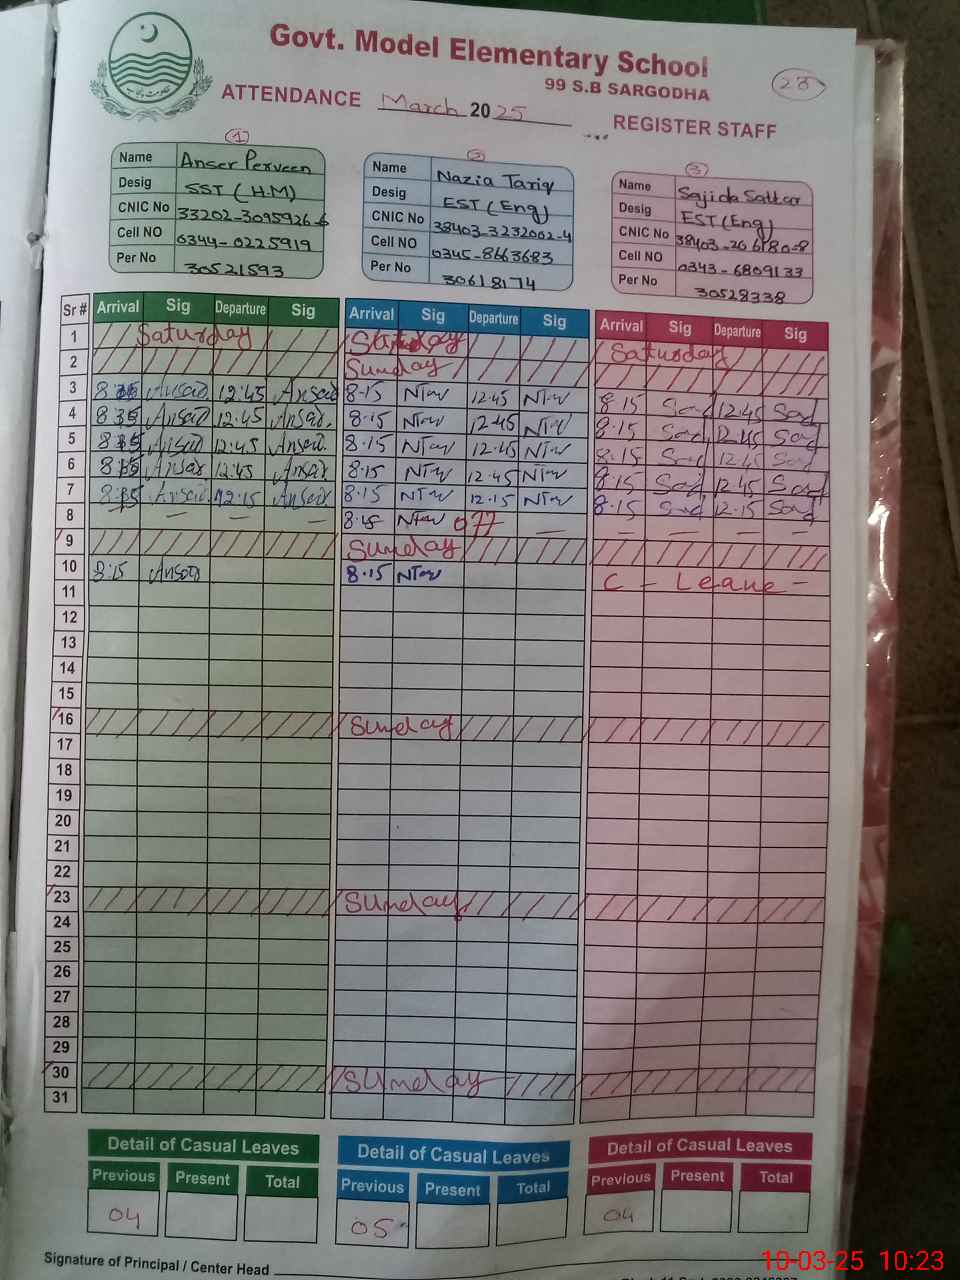 Govt. Model Elementary School
99 S.B SARGODHA
23
ATTENDANCE March 2025 REGISTER STAFF
1
Name Anser Perveen
Desig SST (H.M)
CNIC No 33202-3095926-6
Cell NO 0344-0225919
Per No 30521593
2
Name Nazia Tariq
Desig EST (Eng)
CNIC No 38403-3232002-4
Cell NO 0345-8663683
Per No 30618174
3
Name Sajida Sattar
Desig EST (Eng)
CNIC No 38403-2061780-8
Cell NO 0343-6809133
Per No 30528338
Sr # Arrival Sig Departure Sig Arrival Sig Departure Sig Arrival Sig Departure Sig
1 Saturday Saturday Saturday
2 Sunday
3 12:45 8.15 12.45 8.15 12.45
4 12:45 8.15 12.45 8.15 12.45
5 12:45 8.15 12.45 8.15 12.45
6 12:45 8.15 12.45 8.15 12.45
7 12.15 8.15 12.15 8.15 12.15
8 — — — 8.15 — — — — —
9 Sunday
10 8:15 8.15 C - Leave -
11
12
13
14
15
16 Sunday
17
18
19
20
21
22
23 Sunday
24
25
26
27
28
29
30 Sunday
31
Detail of Casual Leaves Detail of Casual Leaves Detail of Casual Leaves
Previous Present Total Previous Present Total Previous Present Total
04 05 04
Signature of Principal / Center Head
10-03-25 10:23